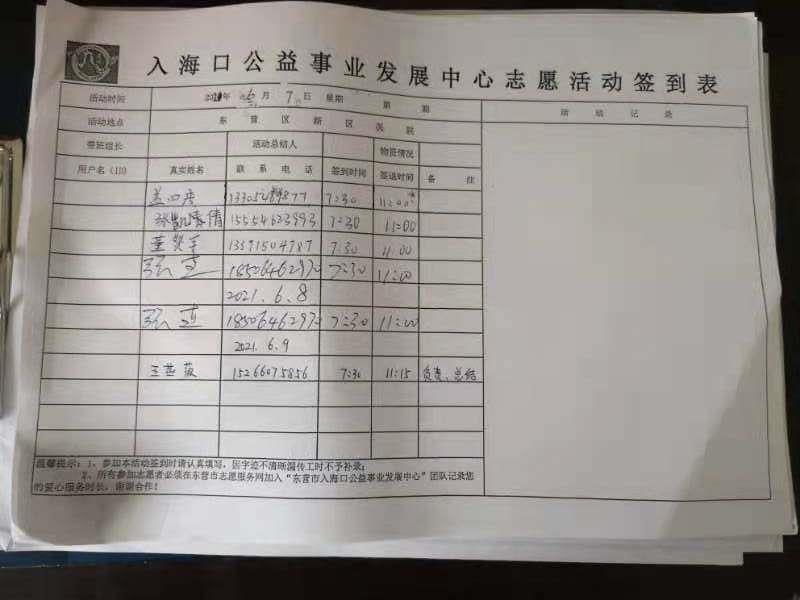 入海口公益事业发展中心志愿活动签到表
活动时间 2021年 6月 7日 星期 第 期 活 动 记 录
活动地点 东 营 区 新 区 医 院
带班组长 活动总结人 物资情况
用户名（ID） 真实姓名 联 系 电 话 签到时间 签退时间 备 注
7:30 11:00
张凯倩倩 15554623993 7:30 11:00
13371504787 7:30 11:00
7:30 11:00
2021.6.8
7:30 11:00
2021.6.9
15266075856 7:30 11:15 负责、总结
温馨提示：1、参加本活动签到时请认真填写，因字迹不清晰漏传工时不予补录；
2、所有参加志愿者必须在东营市志愿服务网加入“东营市入海口公益事业发展中心”团队记录您
的爱心服务时长，谢谢合作！